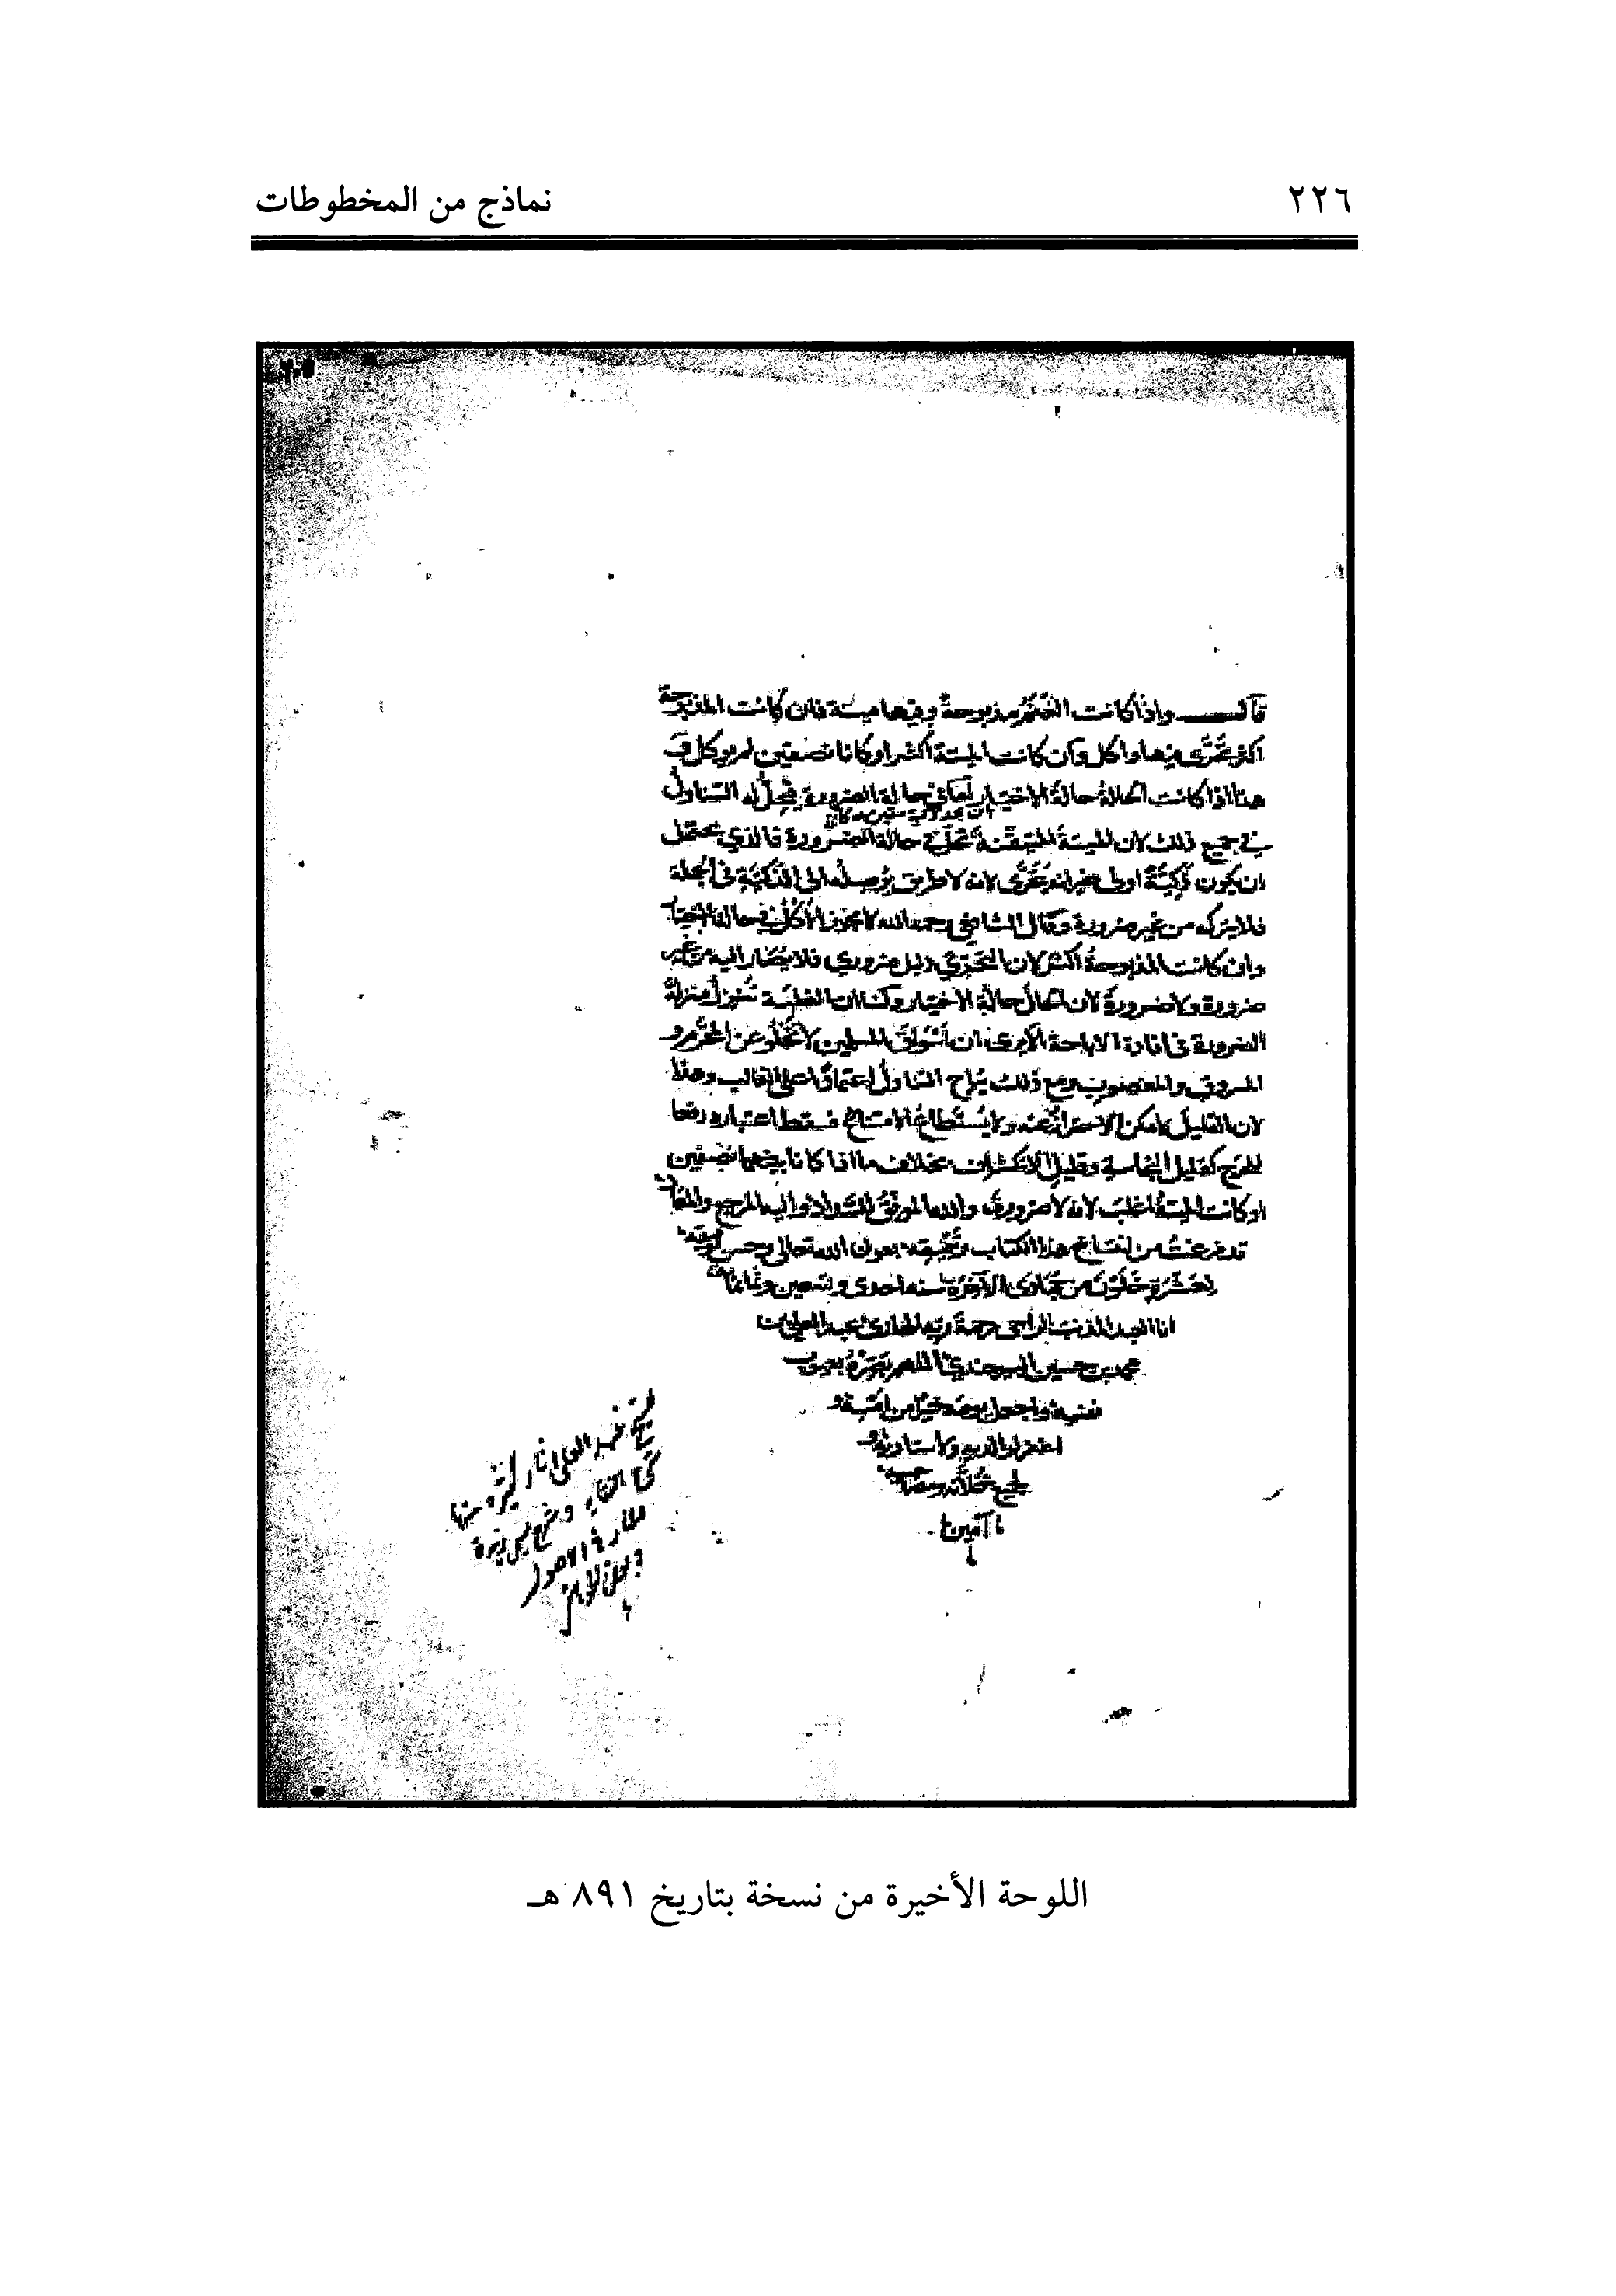 ٢٢٦
نماذج من المخطوطات
قال وإذا كانت الغنم مذبوحة وفيها ميتة فان كانت المذبوحة
اكثر تحرى فيها واكل وان كانت الميتة اكثر او كانا نصفين لم يوكل في
هذا اذا كانت الحالة حالة الاختيار اما في حالة الضرورة يحل له التناول
في جميع ذلك لان الميتة المتيقنة تحل في حالة الضرورة فالذي يحتمل
ان يكون ذكية اولى غير انه يتحرى لانه لا طريق يوصله الى الذكية في الجملة
فلا يتركه من غير ضرورة وقال الشافعي رحمه الله لا يجوز الاكل في حالة الاختيار
وان كانت المذبوحة اكثر لان التحري دليل ضروري فلا يصار اليه من غير
ضرورة ولا ضرورة لان الحال حالة الاختيار ولنا ان الغلبة تنزل منزلة
الضرورة في افادة الاباحة الا يرى ان اسواق المسلمين لا تخلو عن المحرم و
المسروق والمغصوب ومع ذلك يباح التناول اعتمادا على الغالب وهذا
لان القليل لا يمكن الاحتراز عنه ولا يستطاع الامتناع فسقط اعتباره دفعا
للحرج كقليل النجاسة وقليل الانكشاف بخلاف ما اذا كانا نصفين
او كانت الميتة اغلب لانه لا ضرورة والله الموفق للسداد واليه المرجع والمعاد
قد فرغت من هذا الكتاب بعون الله تعالى وحسن توفيقه
لعشرة خلون من جمادى الآخرة سنه احدى وتسعين وثمانمائة
انا العبد المذنب الراجي رحمة ربه
محمد بن حسين
واجعل يومه خيرا من امسه و
اغفر لوالديه ولاستاذيه و
لجميع
آمين
اللوحة الأخيرة من نسخة بتاريخ ٨٩١ هـ